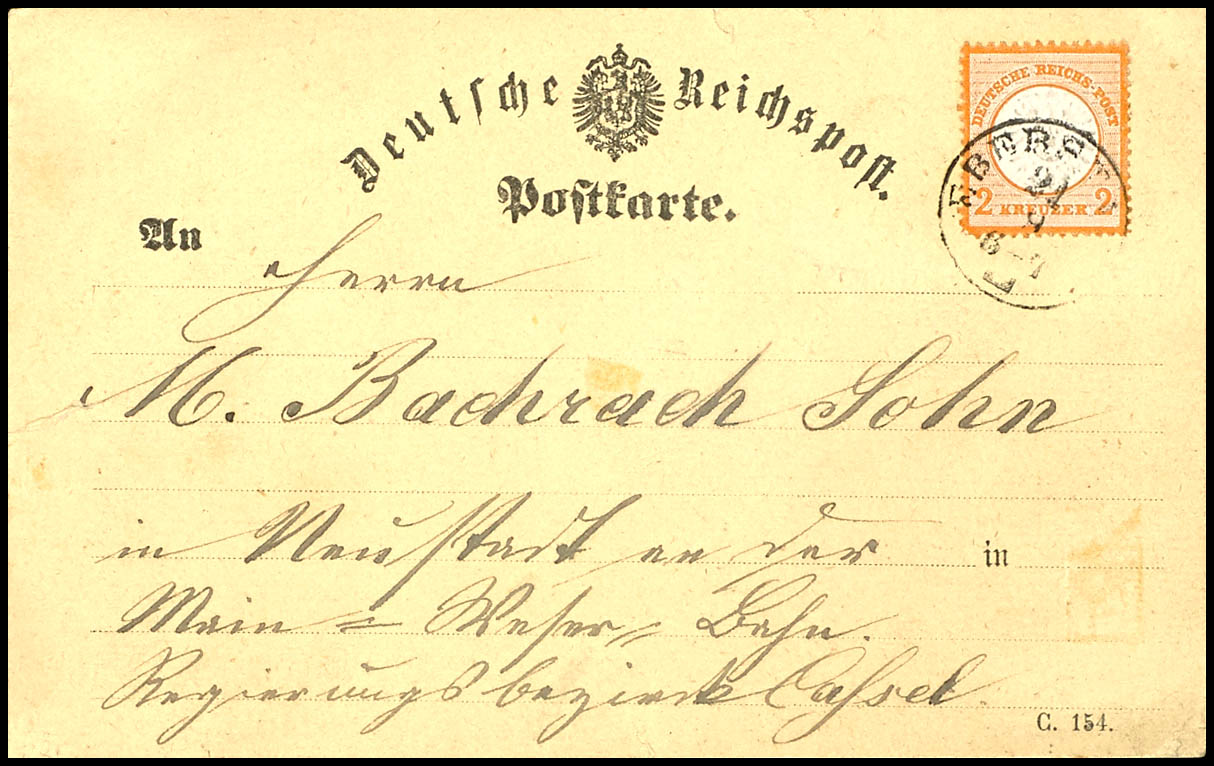 Deutsche Reichspost.
Postkarte.
DEUTSCHE REICHS-POST
2 KREUZER 2
An
Herrn
M. Bachrach Sohn
in Neustadt an der in
Main = Weser = Bahn.
Regierungsbezirk Cassel.
C. 154.